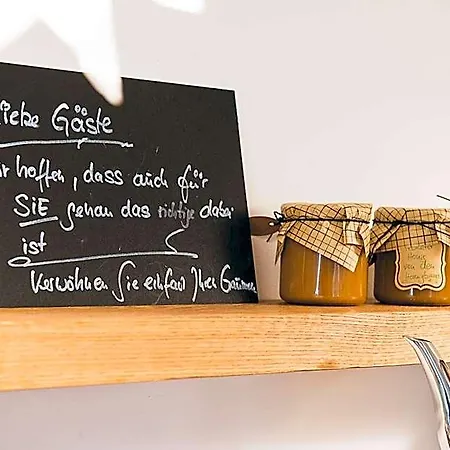 Liebe Gäste
Wir hoffen, dass auch für
SIE genau das richtige dabei
ist
Verwöhnen Sie einfach Ihren Gaumen
Honig
von der